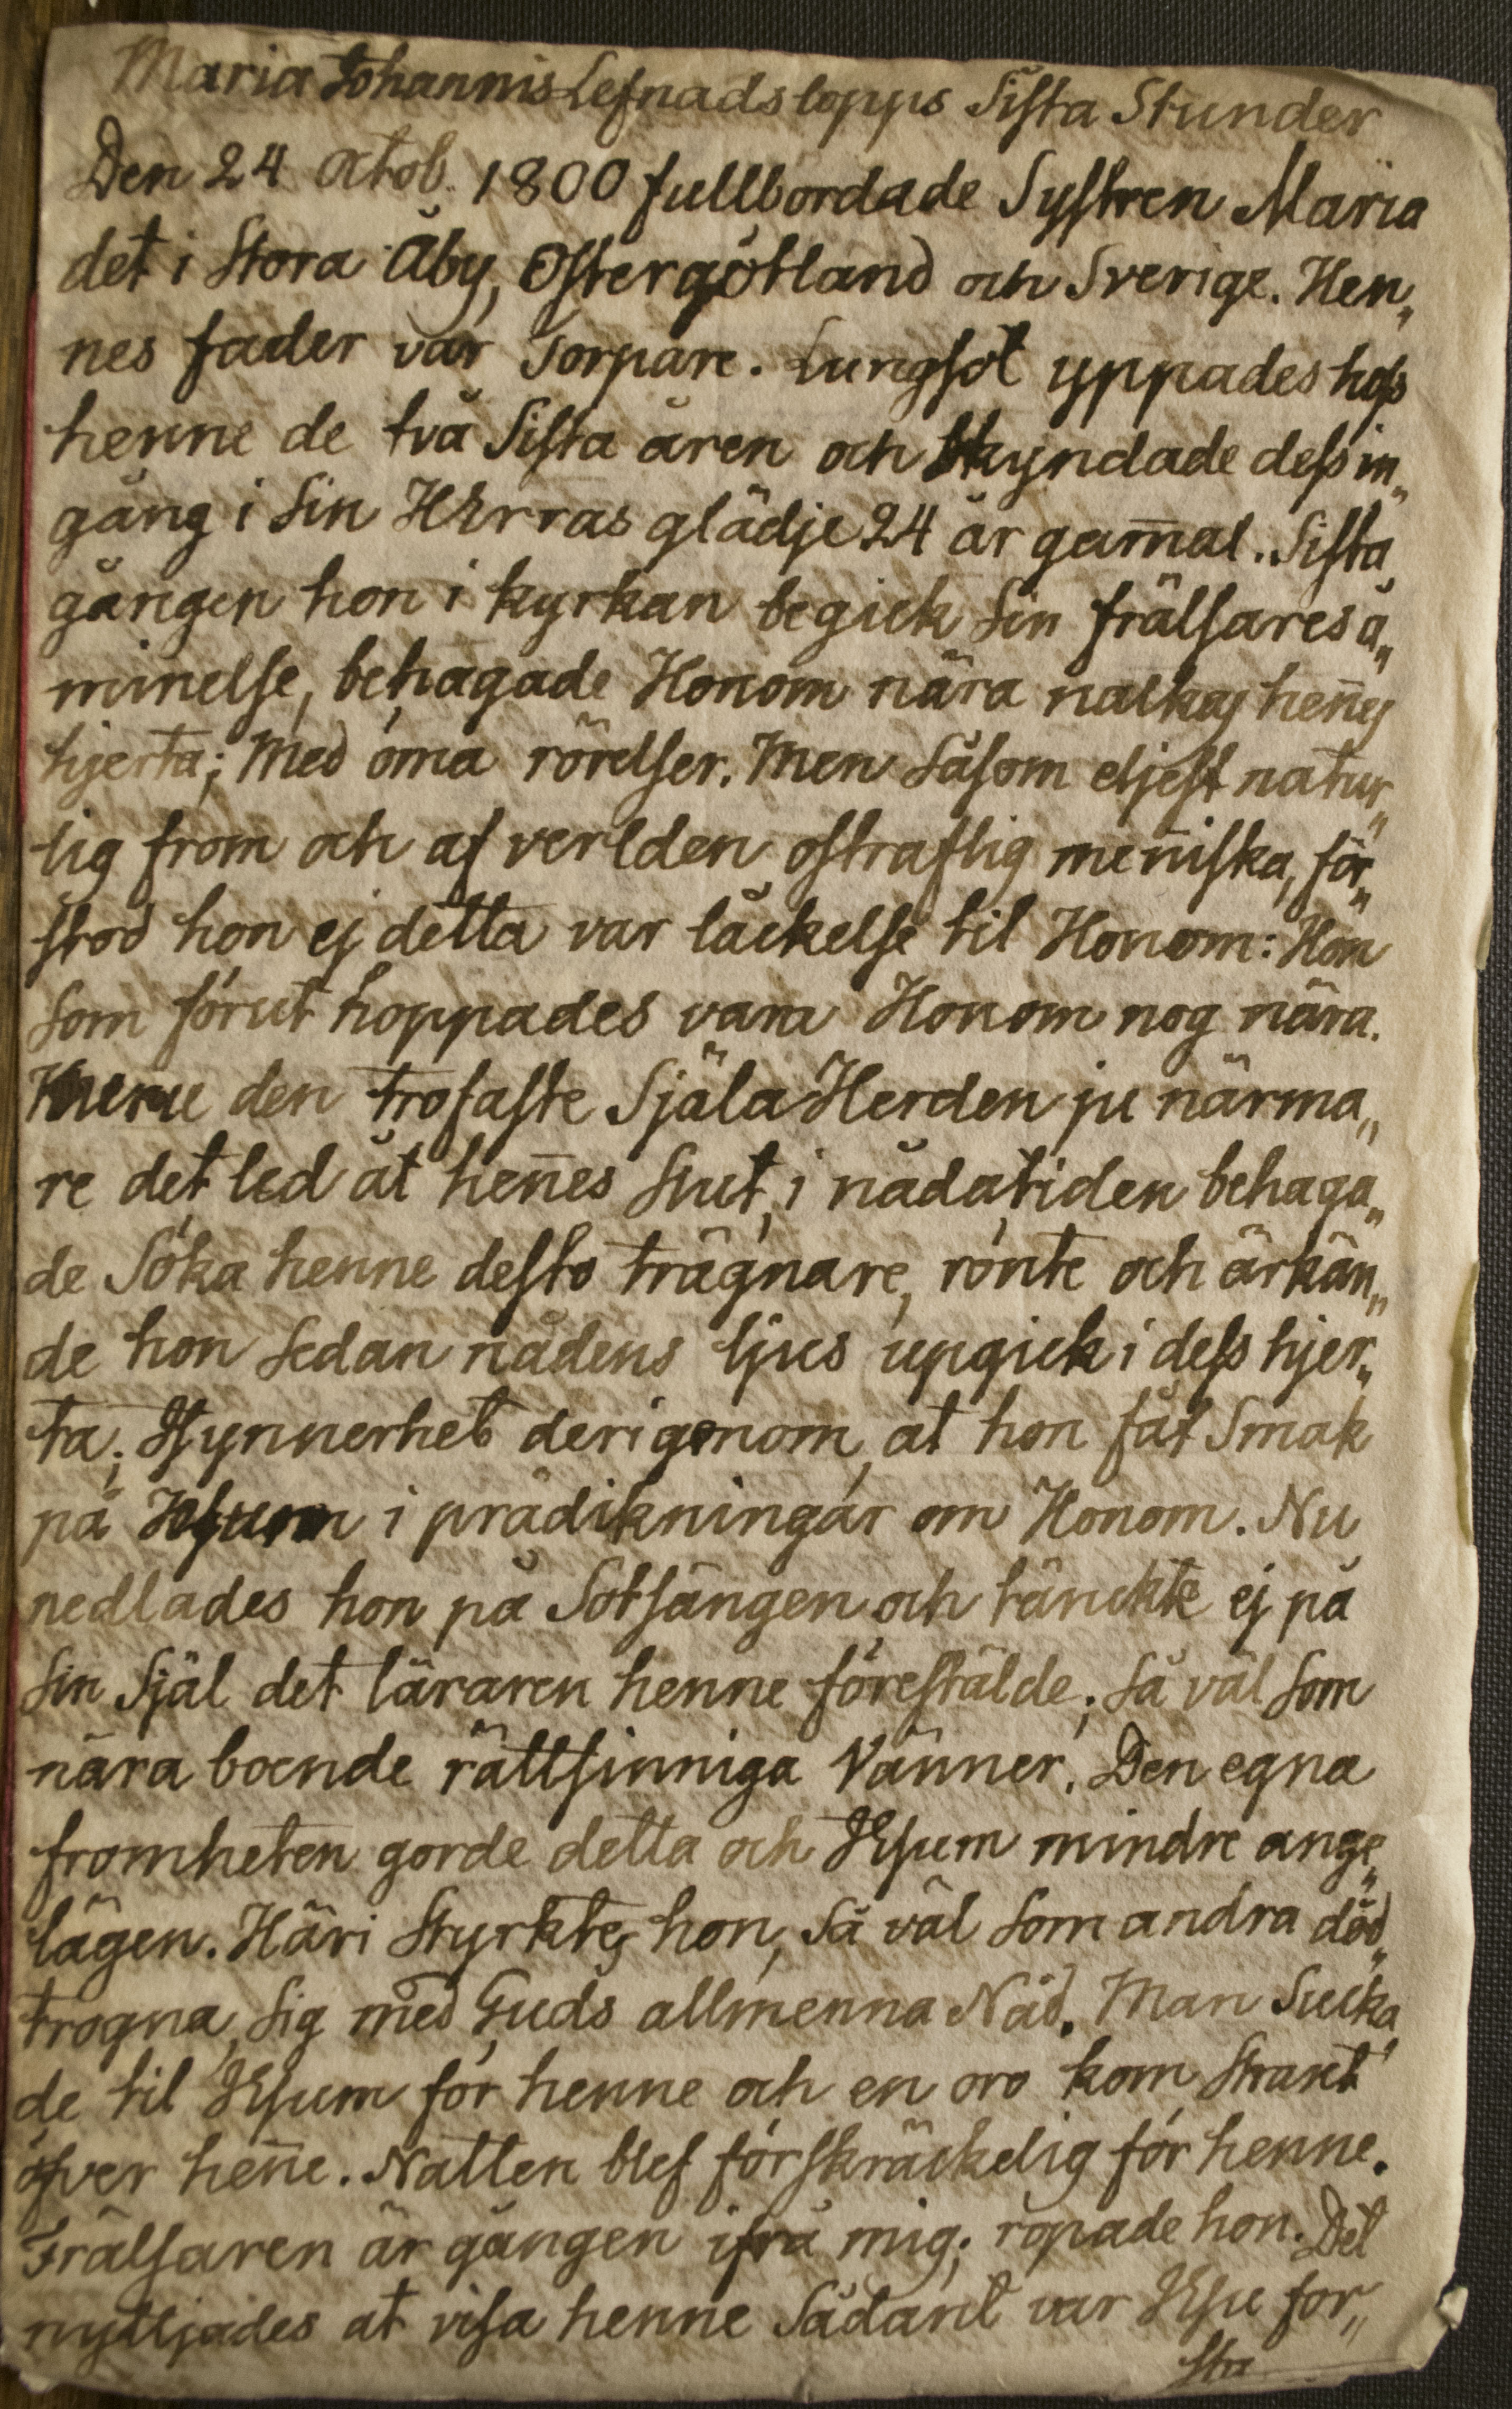 Maria Johannis Lefnadslopps Sista Stunder
Den 24 Octob. 1800 fullbordade Systren Maria
det i Stora Åby, Östergötland och Sverige. Hen„
nes fader var Torpare. Lungsot yppades hos
henne de två Sista åren och Skyndade dess in„
gång i Sin HErras glädje 24 år gam̄al. Sista
gången hon i kyrkan begick Sin frälsares å„
minnelse, behagade Honom nära nalkas hen̄es
hjerta; Med öma rörelser. Men Såsom eljest natur„
lig from och af verlden ostraflig men̄iska, för„
stod hon ej detta var låckelse til Honom: Hon
Som förut hoppades vara Honom nog nära.
Huru den trofaste SjälaHerden ju närma„
re det led åt hen̄es Slut, i nådatiden behaga„
de Söka henne desto trägnare, rönte och ärkän„
de hon Sedan nådens ljus upgick i dess hjer„
ta; Synnerhet derigenom, at hon fåt Smak
på JEsum i prädikningar om Honom. Nu
nedlades hon på Sotsängen och tänckte ej på
Sin Själ det läraren henne förestälde; Så väl Som
nära boende rättsinniga Vänner. Den egna
fromheten gorde detta och JEsum mindre ange„
lägen. Häri Styrktes hon, Så väl Som andra död„
trogna, Sig med Guds allmenna Nåd. Man Sucka„
de til JEsum för henne och en oro kom Straxt
öfver hen̄e. Natten blef förskräckelig för henne.
Frälsaren är gången ifrå mig; ropade hon. Det
nyttjades at visa henne Sådant var JEsu för„
sta